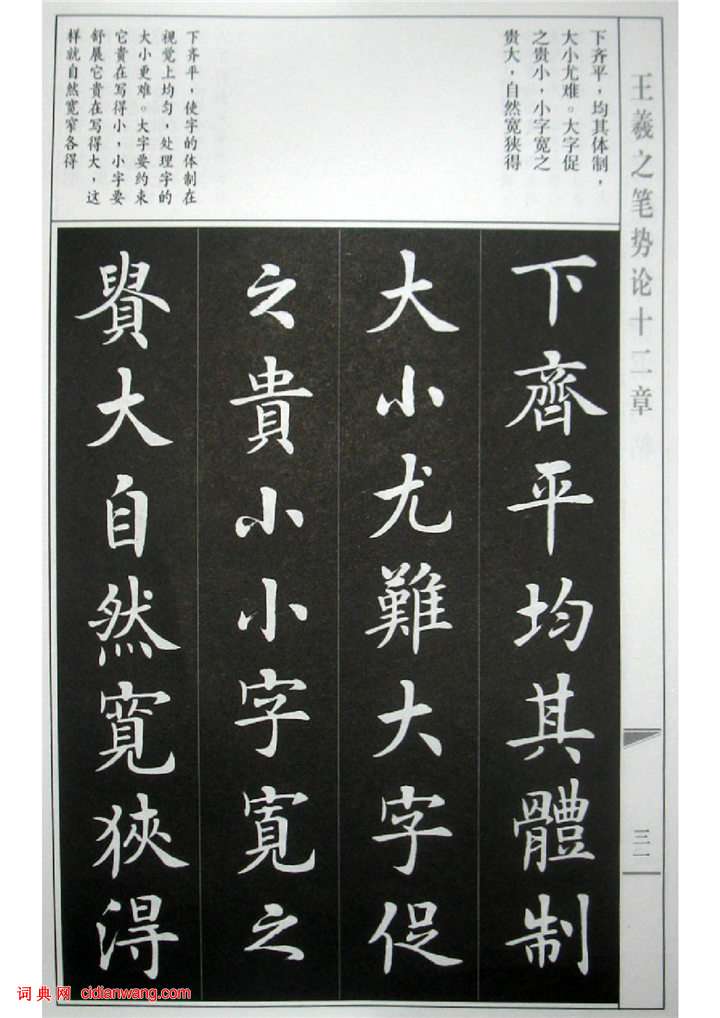 王羲之笔势论十二章
下齐平，均其体制，
大小尤难。大字促
之贵小，小字宽之
贵大，自然宽狭得
下齐平，使字的体制在
视觉上均匀，处理字的
大小更难。大字要约束
它贵在写得小，小字要
舒展它贵在写得大，这
样就自然宽窄各得
下齊平均其體制
大小尤難大字促
之貴小小字寬之
貴大自然寬狹得
三一
词典网 cidianwang.com